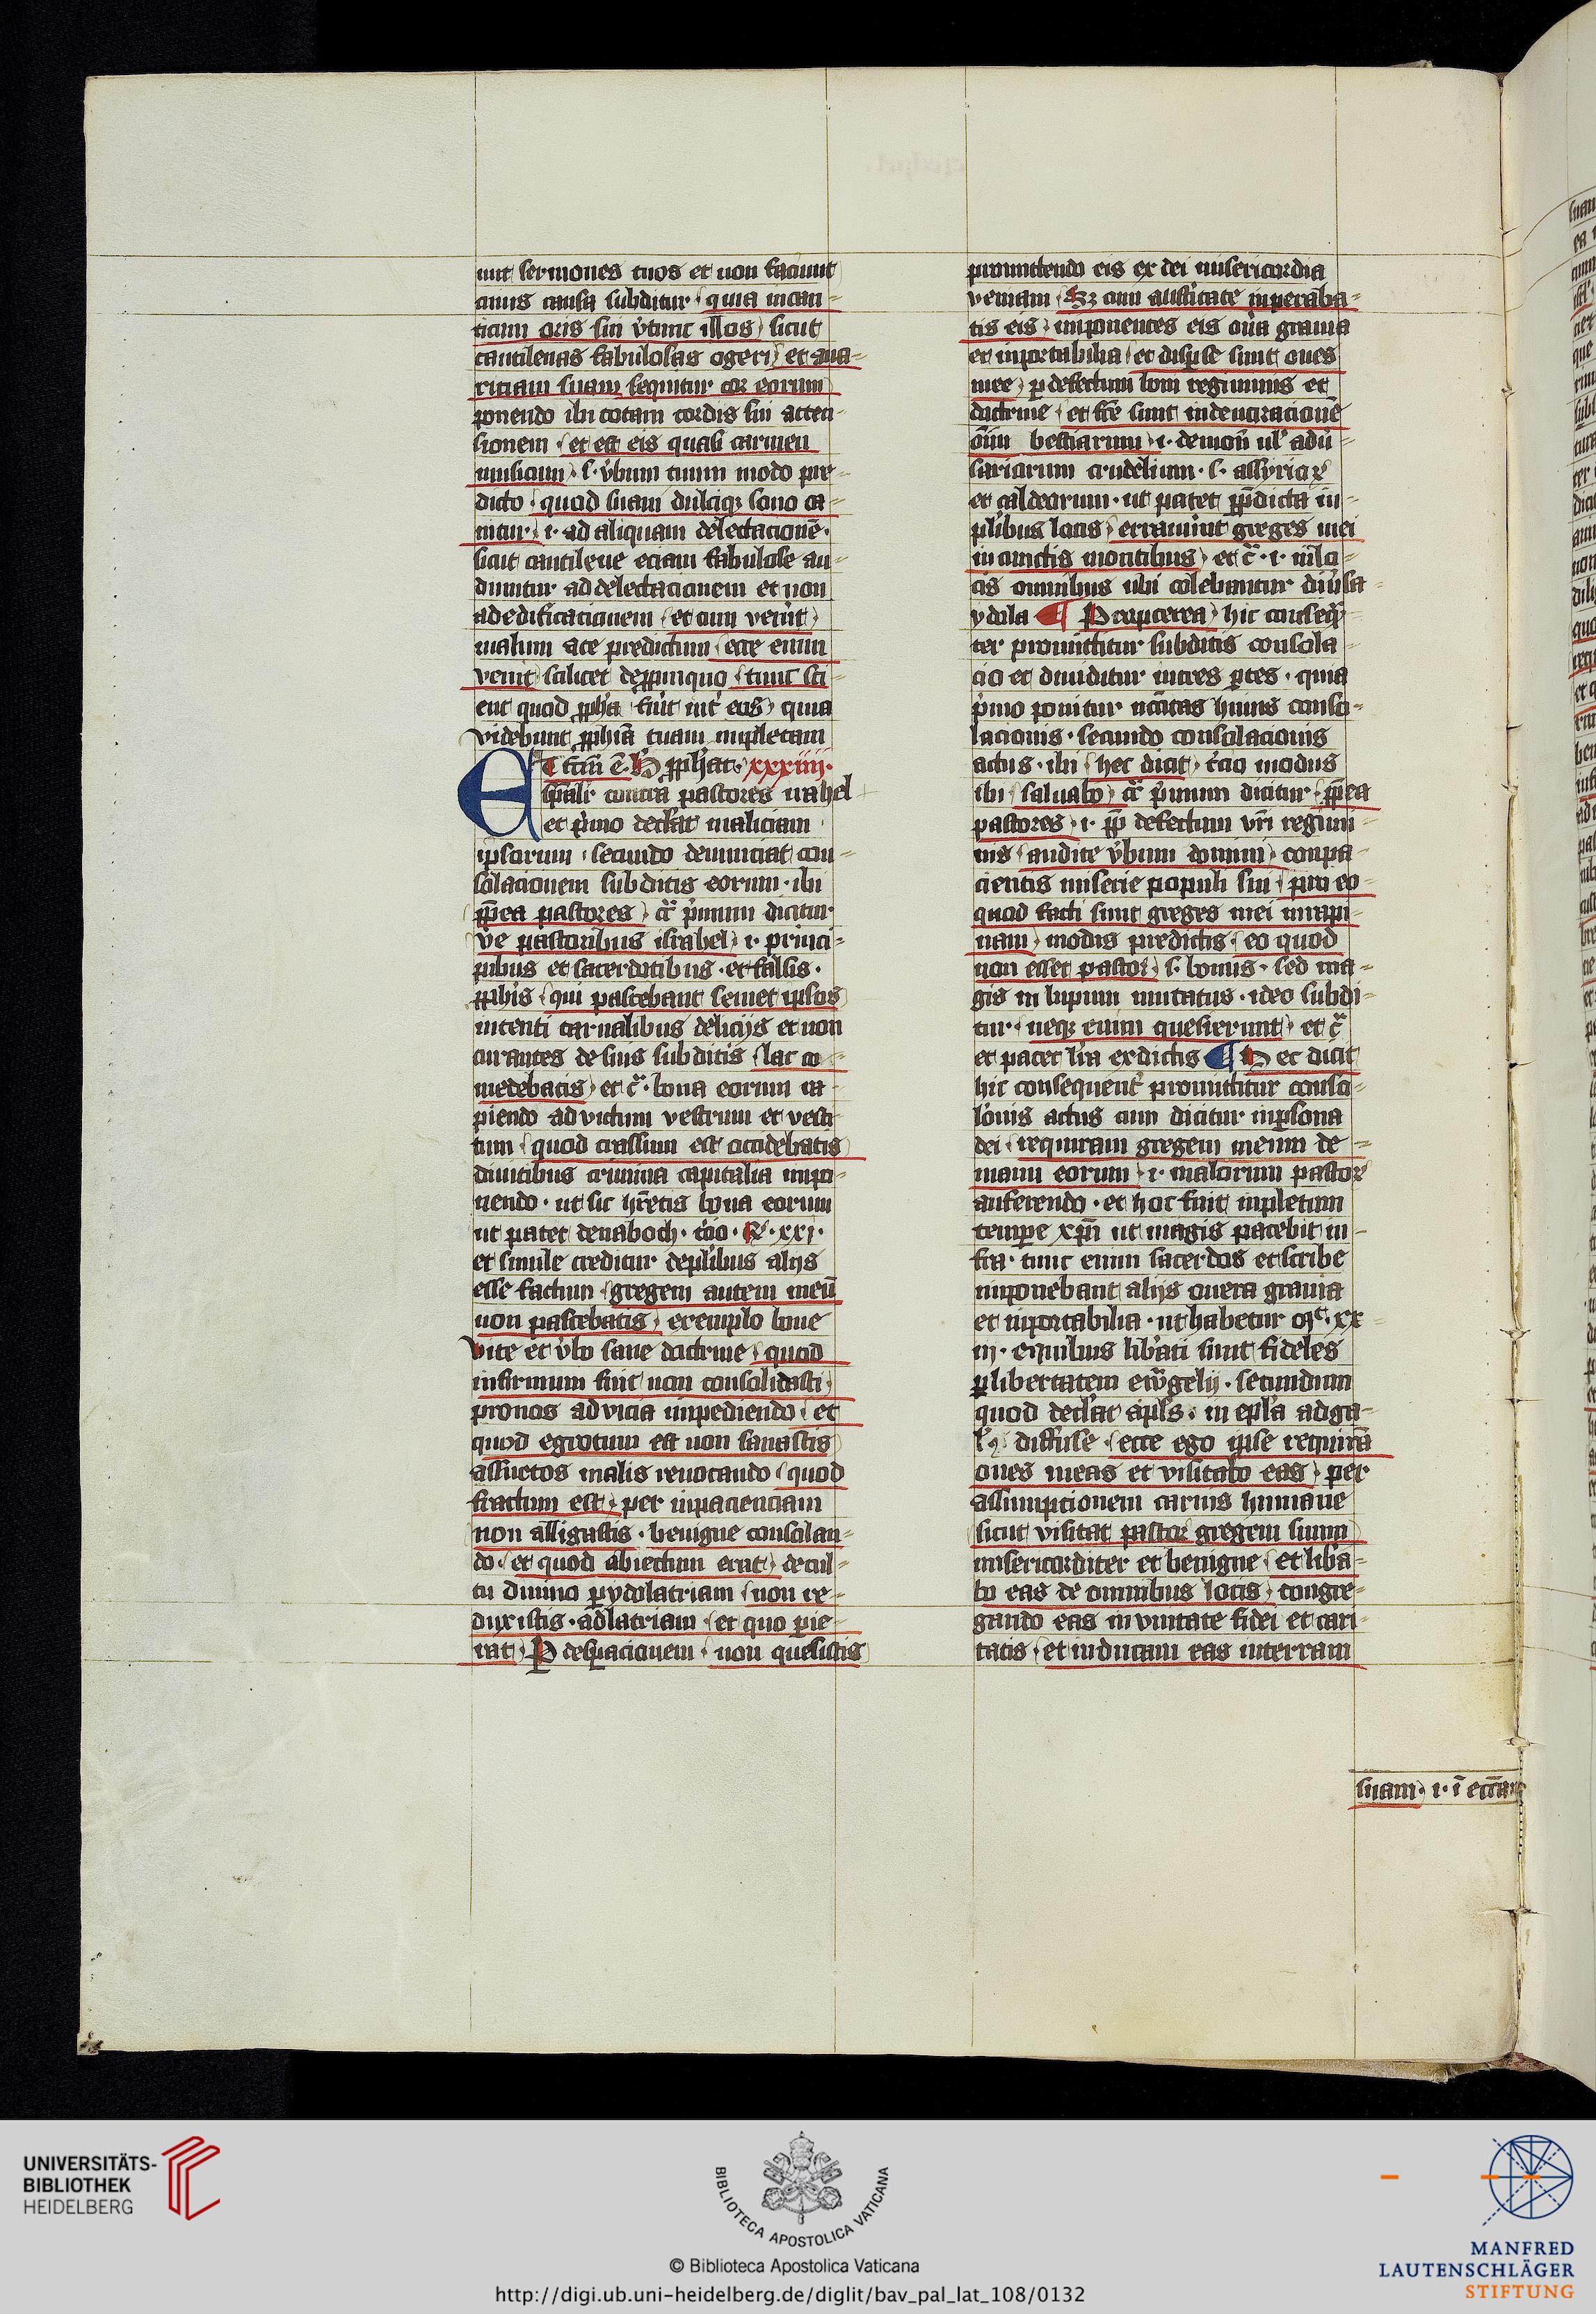 iut sermones tuos et non faciunt
cuius causa subditur quia incan-
ticum oris sui v̾tunt illos sicut
cantilenas fabulosas ogeri et aua-
riciam suam sequitur cor eorum
ponendo ibi totam cordis sui affec-
sionem et est eis quasi carmen
musicum .s. v̾bum tuum modo pre-
dicto quod suaui dulciqꝫ sono ca-
nitur .i. ad aliquam delectacionē.
sicut cantilene eciam fabulose au-
diuntur ad delectacionem et non
ad edificacionem et cum ven̾it
malum a te predictum ecce enim
venit scilicet de ꝓpinquo tunc sci-
ent quod ꝓpha fu̾it int̾ eos quia
videbunt ꝓphīā tuam impletam
Et fcm̄ ē. Hꝰ ꝓph̾at. xxxiiii.
sp̄alr̾ contra pastores israhel
et p̾mo decl̾at maliciam
ipsorum secundo denunciat con-
solacionem subditis eorum. ibi
ꝓp̄ea pastores cr̄ p̾mum dicitur
ve pastoribus israhel .i. princi-
pibus et sacerdotibus. et falsis.
ꝓphis qui pascebant semet ipsos
intenti carnalibus delicijs et non
curantes de suis subditis lac co-
medebatis et cr̄. bona eorum ca-
piendo ad victum vestrum et vesti-
tum quod crassum est occidebatis
diuitibus crimina capitalia impo-
nendo. ut sic hr̄etis bona eorum
ut patet de naboth. t̾cio. R̾. xxj.
et simile creditur de pl̾ibus alijs
esse factum gregem autem meū
non pascebatis exemplo bone
vite et v̾bo sane doctrine quod
infirmum fuit non consolidasti
pronos ad vicia impediendo et
quod egrotum est non sanastis
assuetos malis reuocando quod
fractum est per inpacienciam
non alligastis. benigne consolan-
do. et quod abiectum erat de cul-
tu diuino ꝑ ydolatriam non re-
duxistis. ad latriam et quo ꝑie-
rat P desꝑacionem non quesistis
promittendo eis ex dei misericordia
veniam Sꝫ cum aust̾itate inperaba-
tis eis imponentes eis on̾a grauia
et inportabilia et disꝑse sunt oues
mee ꝑ defectum boni regiminis et
doctrine et fc̄e sunt in deuoracionē
om̄iū bestiarum .i. demon̄ ul̾ adu̾-
sariorum crudelium. s. assyrioꝝ
et caldeorum. ut patet ꝑ p̄dicta in
pl̾ibus locis errau̾int greges mei
in cunctis montibus et cr̄ .i. in lo-
cis omnibus ubi colebantur diu̾sa
ydola ¶ Propterea hic conseqn̄-
ter promittitur subditis consola-
cio et diuiditur in tres ꝑtes. quia
p̾mo ponitur nc̄itas huius conso-
lacionis. secundo consolacionis
actus. ibi hec dicit t̾cio modus
ibi saluabo cr̄ p̾mum dicitur ꝓp̄ea
pastores .i. ꝓp̄ defectum vr̄i regimi-
nis audite v̾bum domini conpa-
cientis miserie populi sui pro eo
quod facti sunt greges mei in rapi-
nam modis predictis eo quod
non esset pastor .s. bonus. sed ma-
gis in lupum mutatus. ideo subdi-
tur neqꝫ enim quesierunt et cr̄
et patet lr̄a ex dictis ¶ Hec dicit
hic consequent̾ promittitur conso-
lōnis actus cum dicitur in ꝑsona
dei requiram gregem meum de
manu eorum .i. malorum pastoꝝ
auferendo. et hoc fuit inpletum
temꝑe xp̄i ut magis patebit in-
fra. tunc enim sacerdos et scribe
imponebant alijs onera grauia
et inportabilia. ut habetur mͭ. xx
iij. ex quibus lib̾ati sunt fideles
ꝑ libertatem ew̄gelij. secundum
quod decl̾at apl̄s. in epl̄a ad ga-
l̾. diffuse ecce ego ipse requirā
oues meas et visitabo eas per
assumptionem carnis humane
sicut visitat pastor gregem suum
misericorditer et benigne et lib̾a-
bo eas de omnibus locis congre-
gando eas in vnitate fidei et cari-
tatis et inducam eas in terram
suam .i. ī
UNIVERSITÄTS-
BIBLIOTHEK
HEIDELBERG
BIBLIOTECA APOSTOLICA VATICANA
© Biblioteca Apostolica Vaticana
http://digi.ub.uni-heidelberg.de/diglit/bav_pal_lat_108/0132
MANFRED
LAUTENSCHLÄGER
STIFTUNG